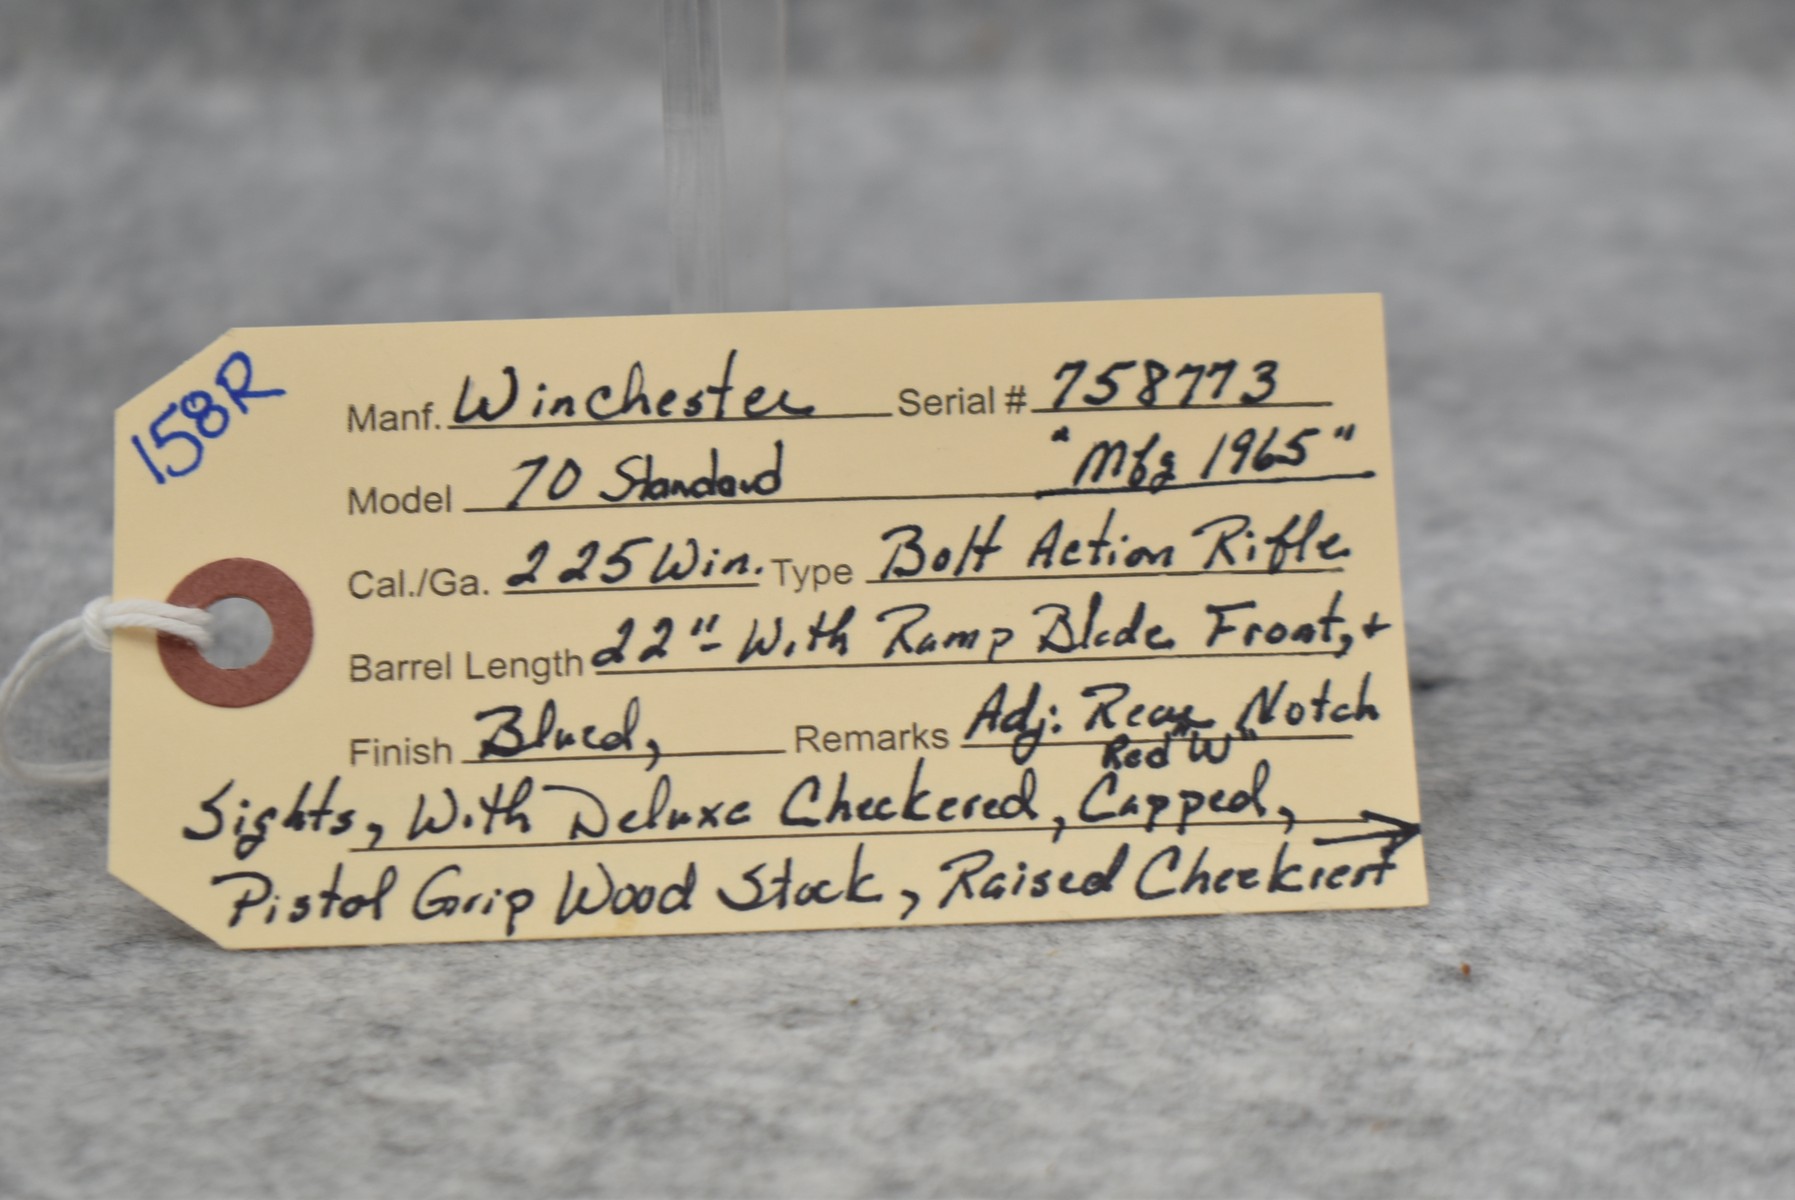 158R
Manf. Winchester Serial # 758773
Model 70 Standard "Mfg 1965"
Cal./Ga. 225 Win. Type Bolt Action Rifle
Barrel Length 22"- With Ramp Blade Front, +
Finish Blued, Remarks Adj: Rear Notch
Red "W"
Sights, With Deluxe Checkered, Capped,
Pistol Grip Wood Stock, Raised Cheekrest